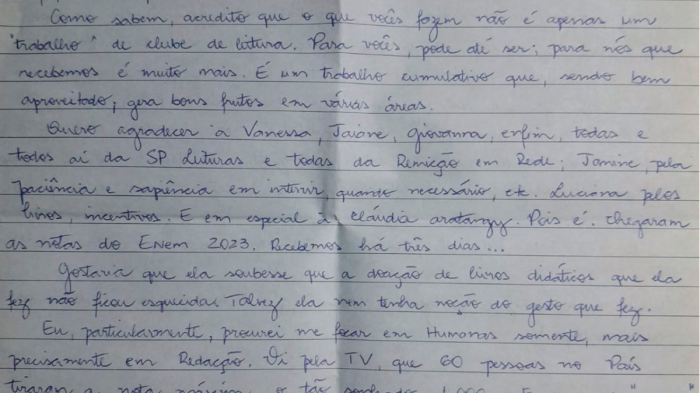 Como sabem, acredito que o que vocês fazem não é apenas um
"trabalho" de clube de leitura. Para vocês, pode até ser; para nós que
recebemos é muito mais. É um trabalho cumulativo que, sendo bem
aproveitado, gera bons frutos em várias áreas.
Quero agradecer à Vanessa, Jaiane, Giovanna, enfim, todas e
todos aí da SP Leituras e todas da Remição em Rede; Janine, pela
paciência e sapiência em intervir, quando necessário, etc. Luciana pelos
livros, incentivos. E em especial à Cláudia Aratangy. Pois é. Chegaram
as notas do Enem 2023. Recebemos há três dias...
Gostaria que ela soubesse que a doação de livros didáticos que ela
fez não ficou esquecida. Talvez ela nem tenha noção do gesto que fez.
Eu, particularmente, procurei me focar em Humanas somente, mais
precisamente em Redação. Vi pela TV, que 60 pessoas no País
tiraram a nota máxima, o tão